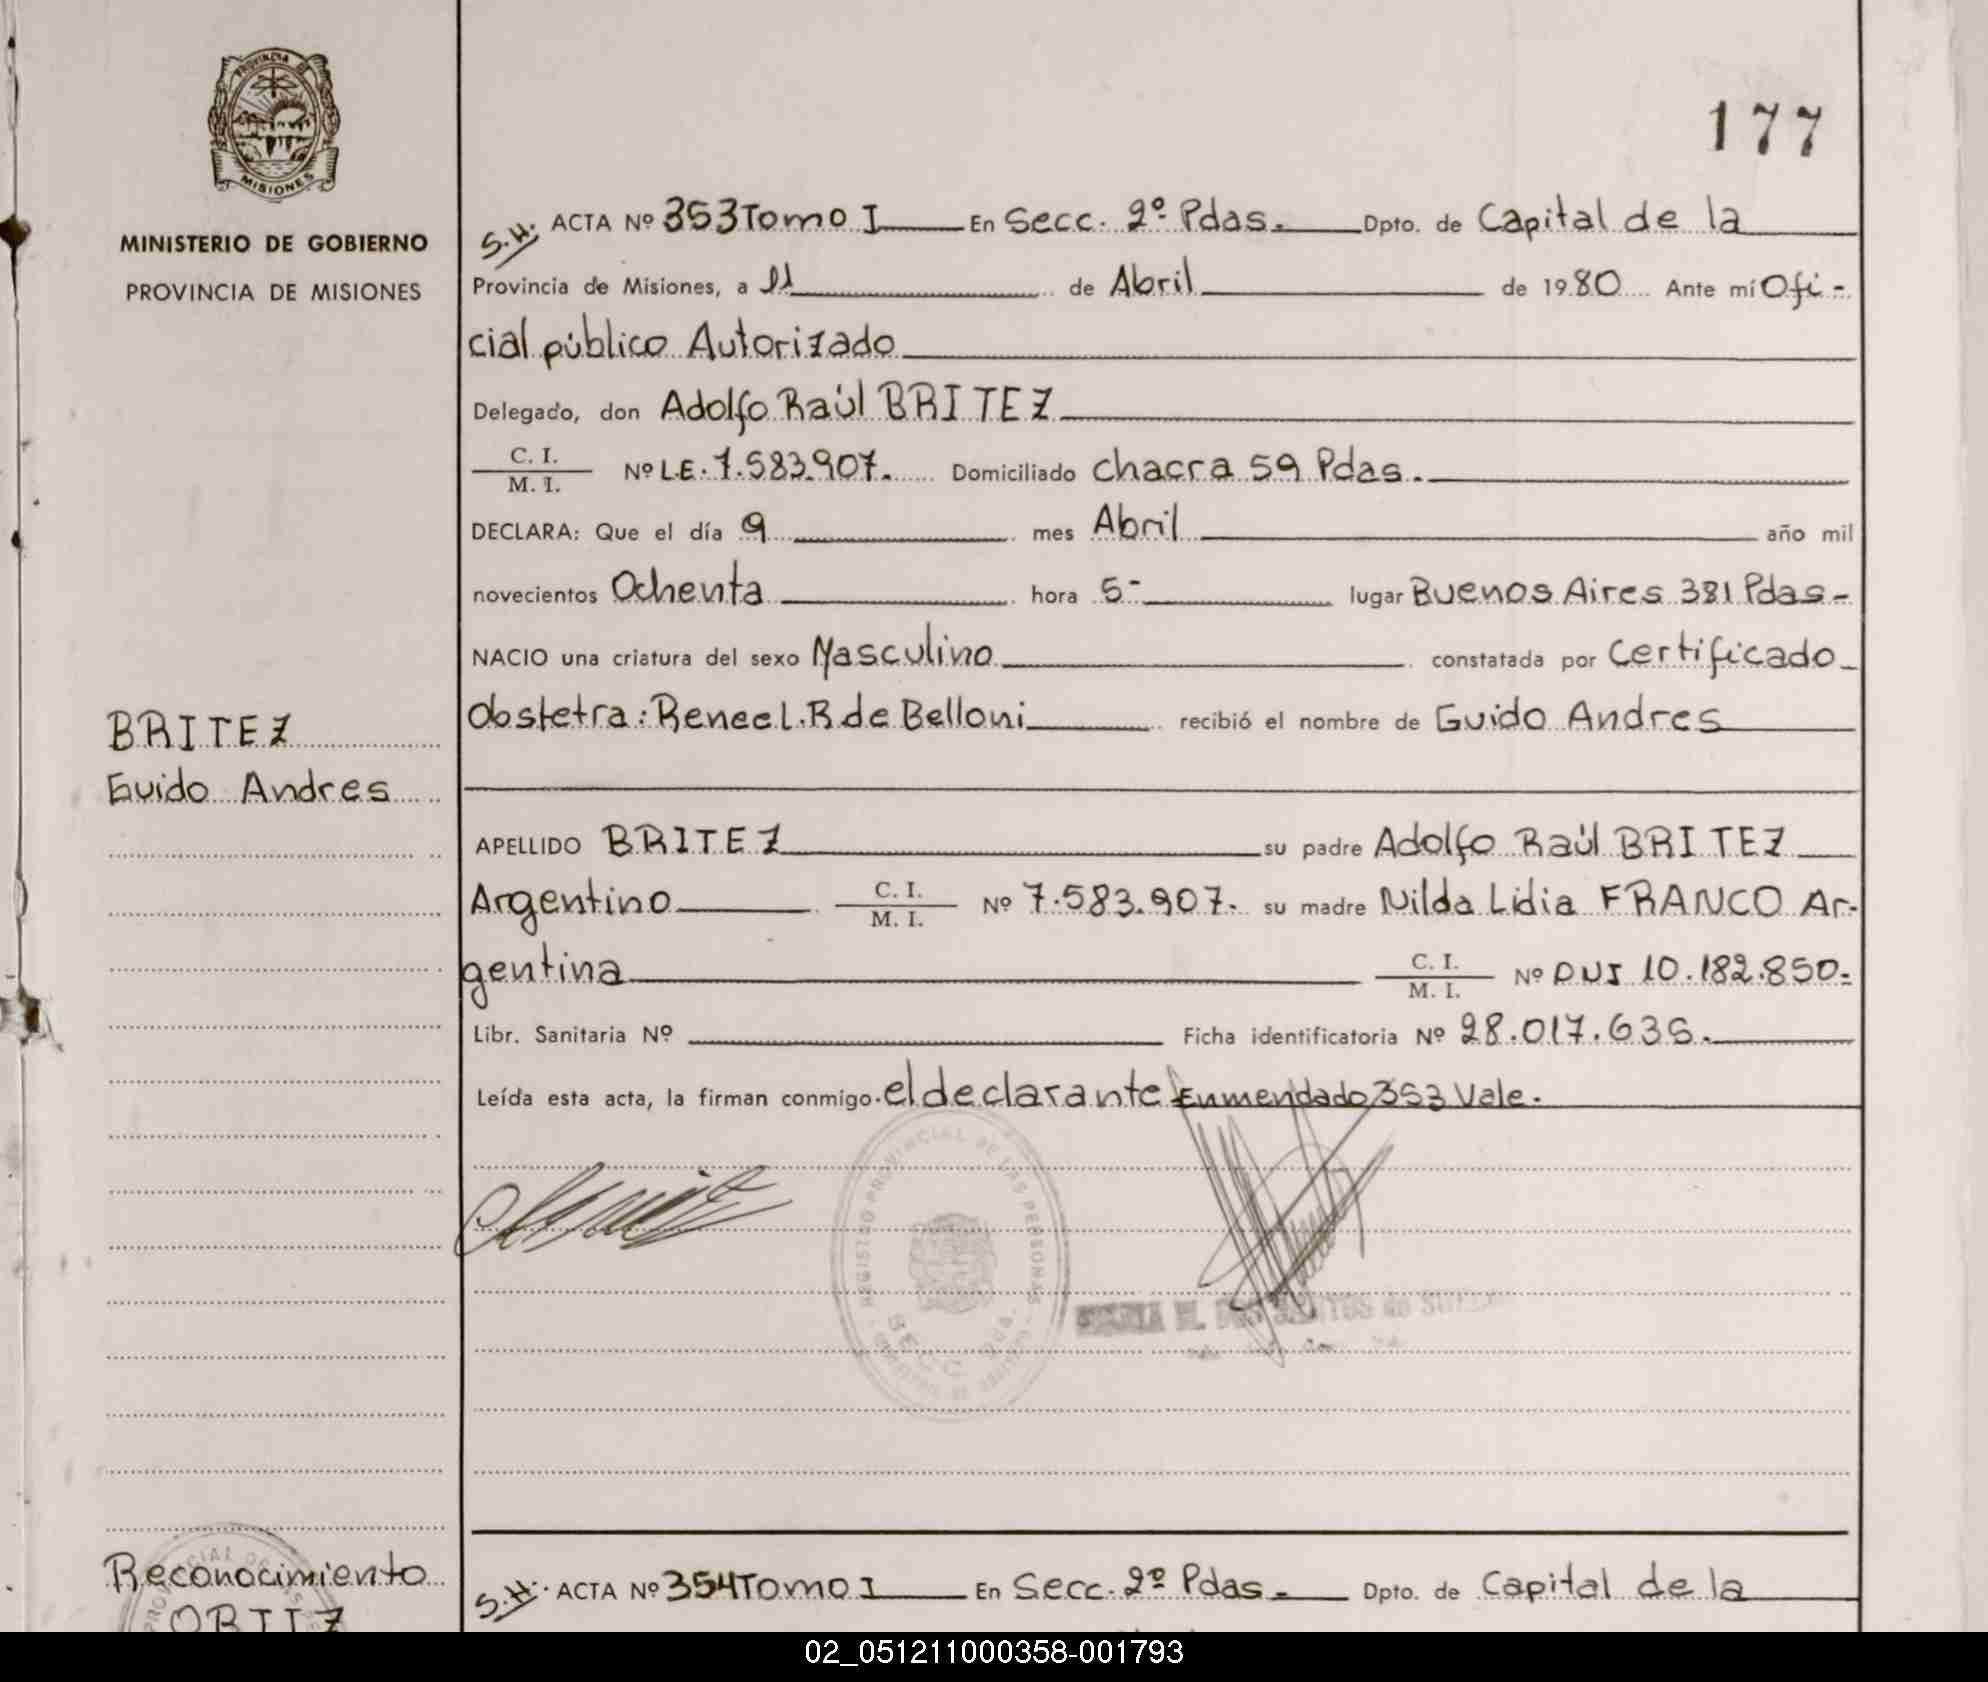 PROVINCIA DE
MISIONES
MINISTERIO DE GOBIERNO
PROVINCIA DE MISIONES
177
S.H. ACTA Nº 353 Tomo I En Secc. 2º Pdas. Dpto. de Capital de la
Provincia de Misiones, a 11 de Abril de 1980 Ante mí Ofi-
cial público Autorizado
Delegado, don Adolfo Raúl BRITEZ
C. I.
M. I.
Nº L.E. 7.583.907. Domiciliado chacra 59 Pdas.
DECLARA: Que el día 9 mes Abril año mil
novecientos Ochenta hora 5- lugar Buenos Aires 381 Pdas-
NACIO una criatura del sexo Masculino constatada por Certificado
Obstetra: Renee L. R. de Belloni recibió el nombre de Guido Andres
BRITEZ
Guido Andres
APELLIDO BRITEZ su padre Adolfo Raúl BRITEZ
Argentino C. I. M. I. Nº 7.583.907. su madre Nilda Lidia FRANCO Ar-
gentina C. I. M. I. Nº DNI 10.182.850.
Libr. Sanitaria Nº Ficha identificatoria Nº 28.017.635.
Leída esta acta, la firman conmigo. el declarante Enmendado 353 Vale.
REGISTRO PROVINCIAL DE LAS PERSONAS
SECC. 2da.
DOS SANTOS de
Reconocimiento
ORTIZ
S.H. ACTA Nº 354 Tomo I En Secc. 2º Pdas. Dpto. de Capital de la
02_051211000358-001793